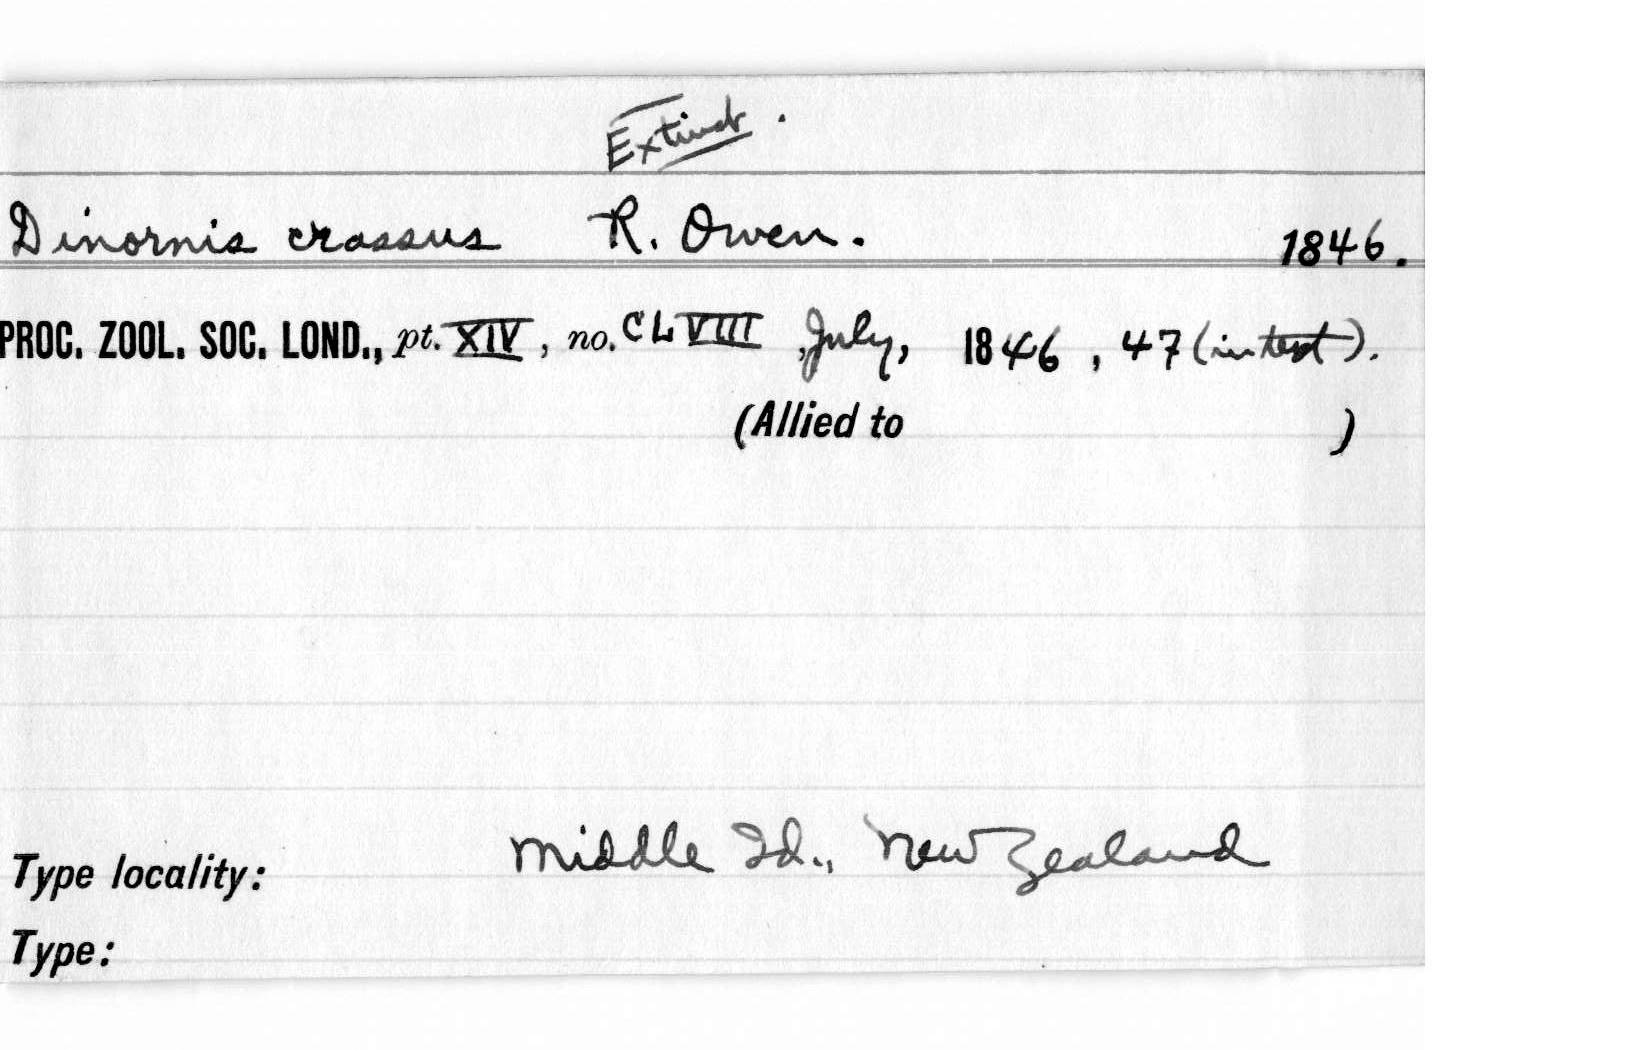 Extinct.
Dinornis crassus R. Owen. 1846.
PROC. ZOOL. SOC. LOND., pt. XIV, no. CLVIII, July, 1846, 47 (in text).
(Allied to )
Type locality: Middle Id., New Zealand
Type: